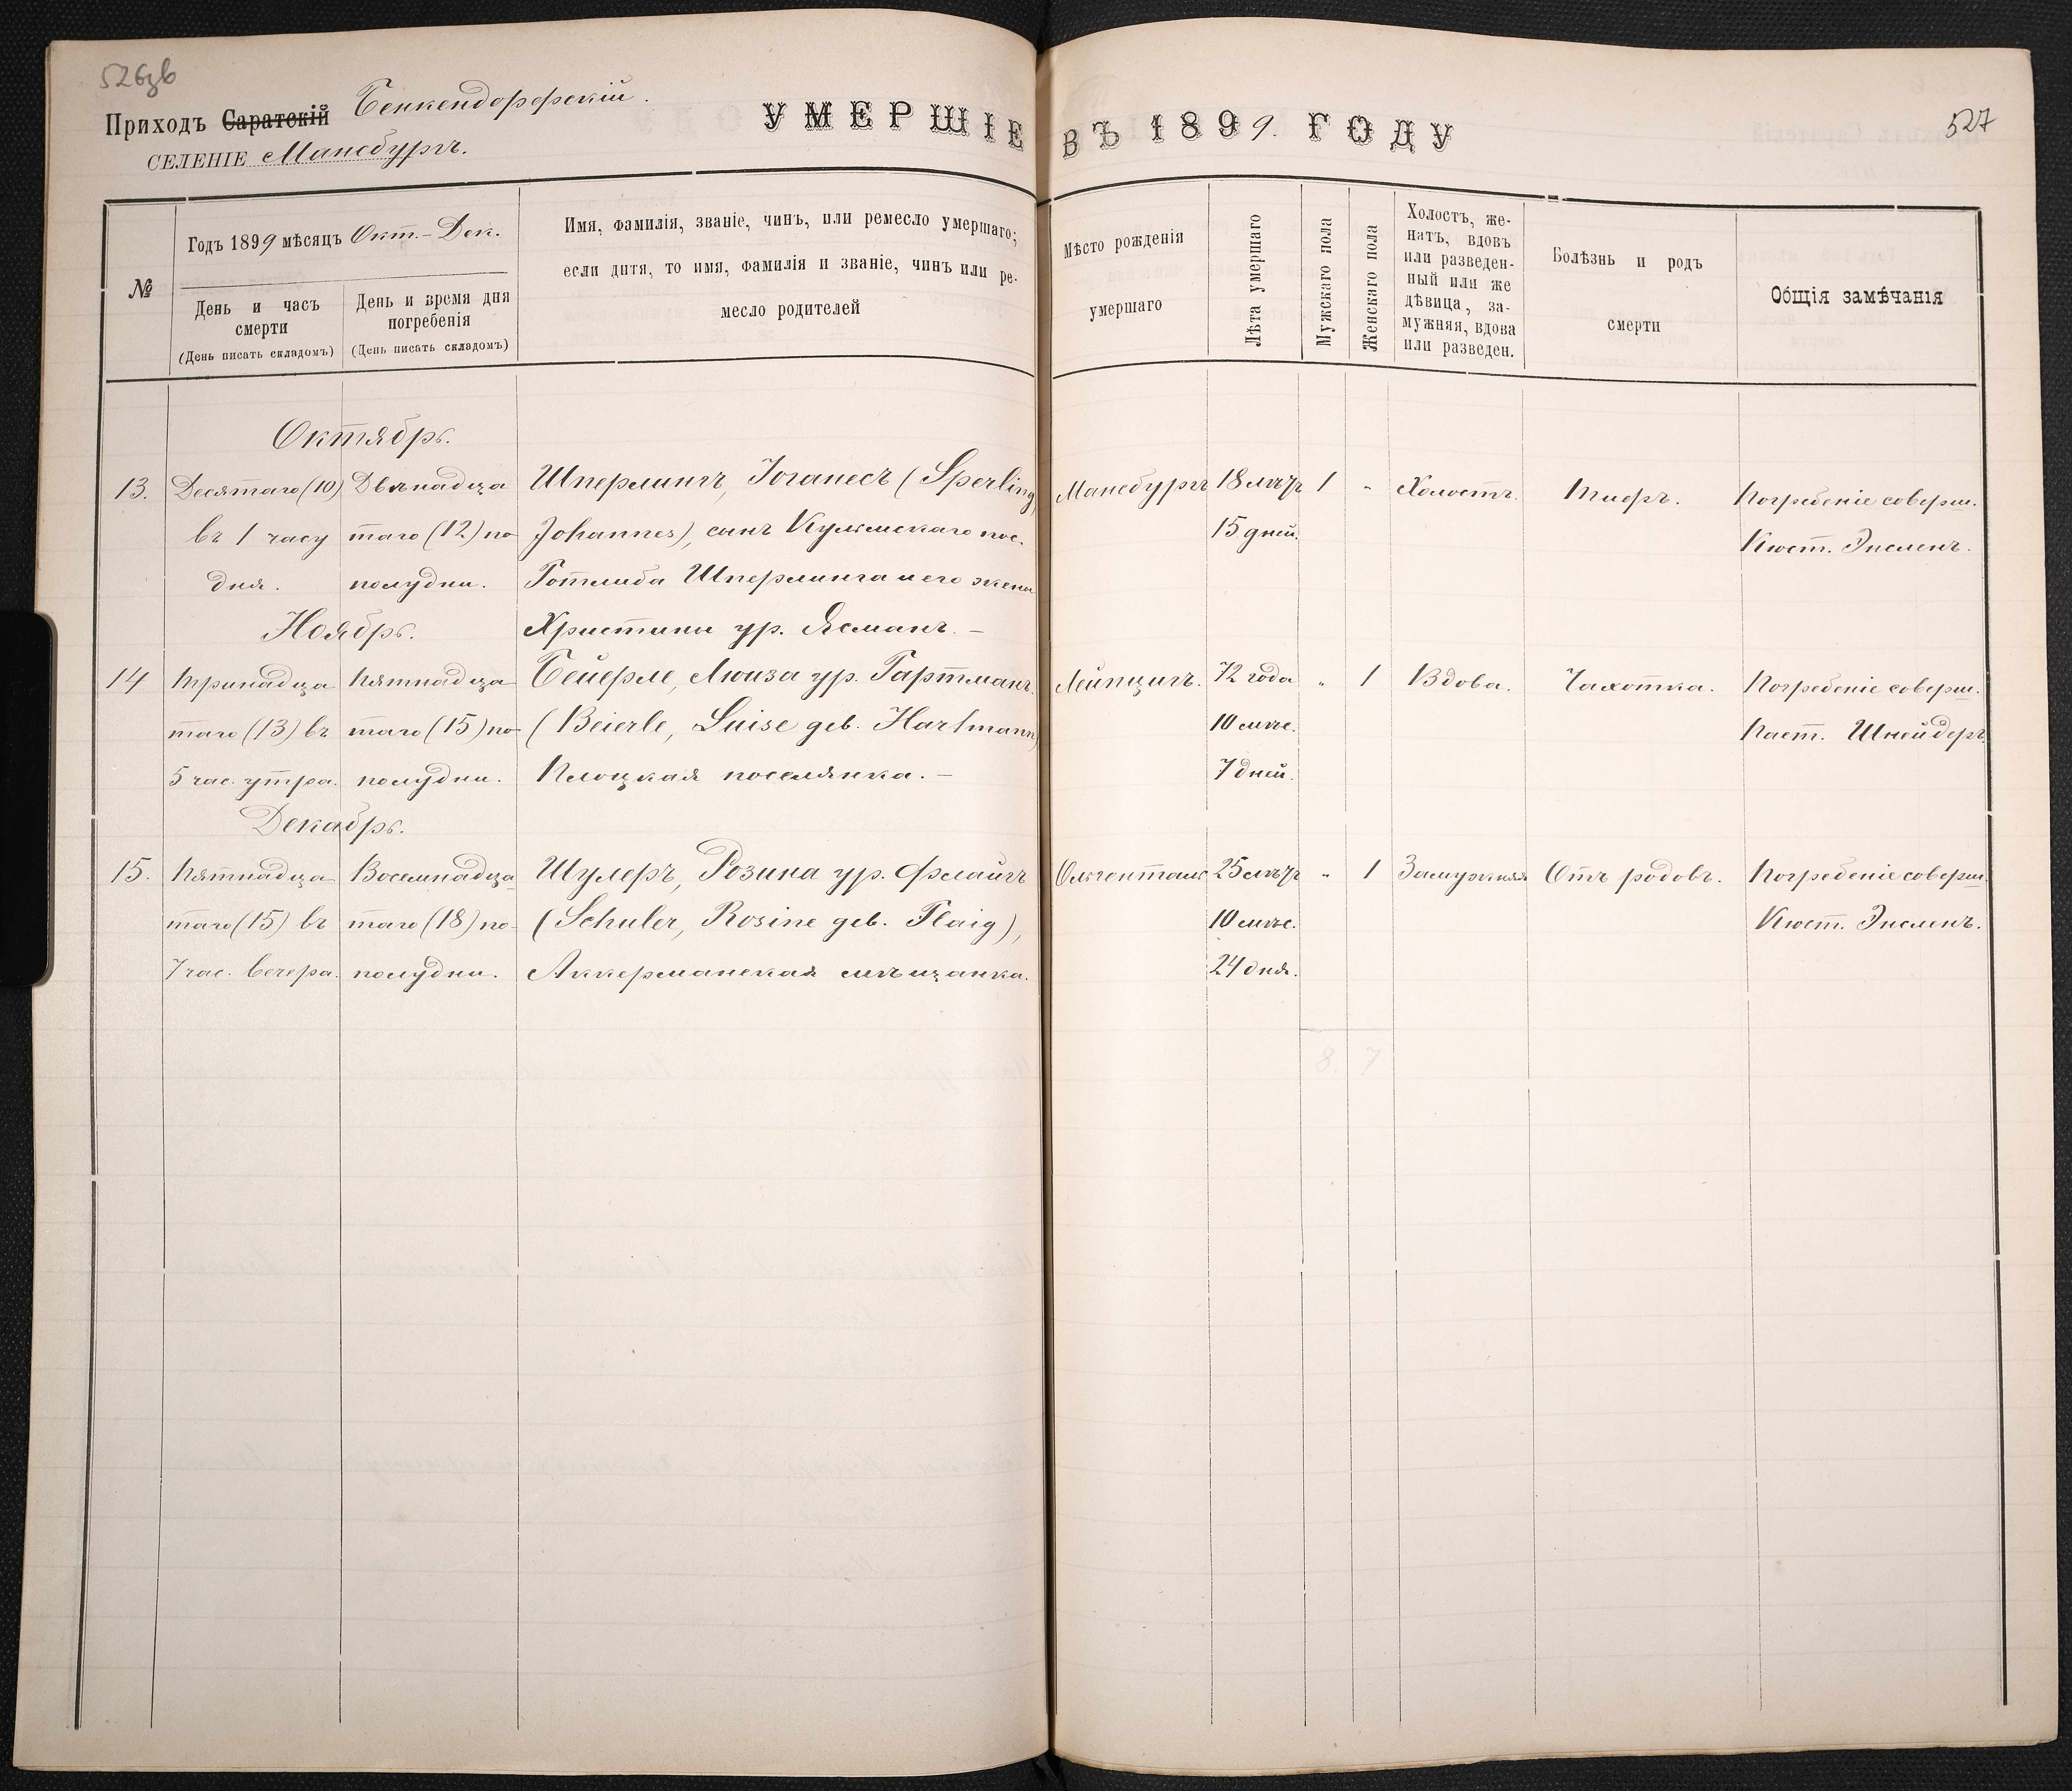 526зв
Приходъ Саратскій Бенкендорфскій.
СЕЛЕНІЕ Мансбургъ.
УМЕРШІЕ ВЪ 1899. ГОДУ
527
№
Годъ 1899 мѣсяцъ Окт.-Дек.
День и часъ смерти
(День писать складомъ)
День и время дня погребенія
(День писать складомъ)
Имя, Фамилія, званіе, чинъ, или ремесло умершаго;
если дитя, то имя, Фамилія и званіе, чинъ или ре-
месло родителей
Мѣсто рожденія
умершаго
Лѣта умершаго
Мужскаго пола
Женскаго пола
Холостъ, же-
натъ, вдовъ
или разведен-
ный или же
дѣвица, за-
мужняя, вдова
или разведен.
Болѣзнь и родъ
смерти
Общія замѣчанія
Октябрь.
13. Десятаго (10) Двѣнадца Шперлингъ, Іоганесъ (Sperling, Мансбургъ 18 лѣтъ 1 „ Холостъ. Тифъ. Погребеніе соверш.
въ 1 часу таго (12) по Johannes), сынъ Кульмскаго пос. 15 дней. Кюст. Энсленъ.
дня. полудни. Готлиба Шперлинга и его жены
Ноябрь. Христины ур. Ясманъ. –
14 Тринадца Пятнадца Бейерле, Луиза ур. Гартманъ. Лейпцигъ. 72 года „ 1 Вдова. Чахотка. Погребеніе соверш.
таго (13) въ таго (15) по (Beierle, Luise geb. Hartmann) 10 мѣс. Паст. Шнейдеръ.
5 час. утра. полудни. Плоцкая поселянка. – 7 дней.
Декабрь.
15. Пятнадца Восемнадца Шулеръ, Розина ур. Флайгъ Ольгенталь 25 лѣтъ „ 1 Замужняя Отъ родовъ. Погребеніе соверш.
таго (15) въ таго (18) по- (Schuler, Rosine geb. Flaig), 10 мѣс. Кюст. Энсленъ.
7 час. вечера. полудни. Аккерманская мѣщанка. 24 дня.
8. 7